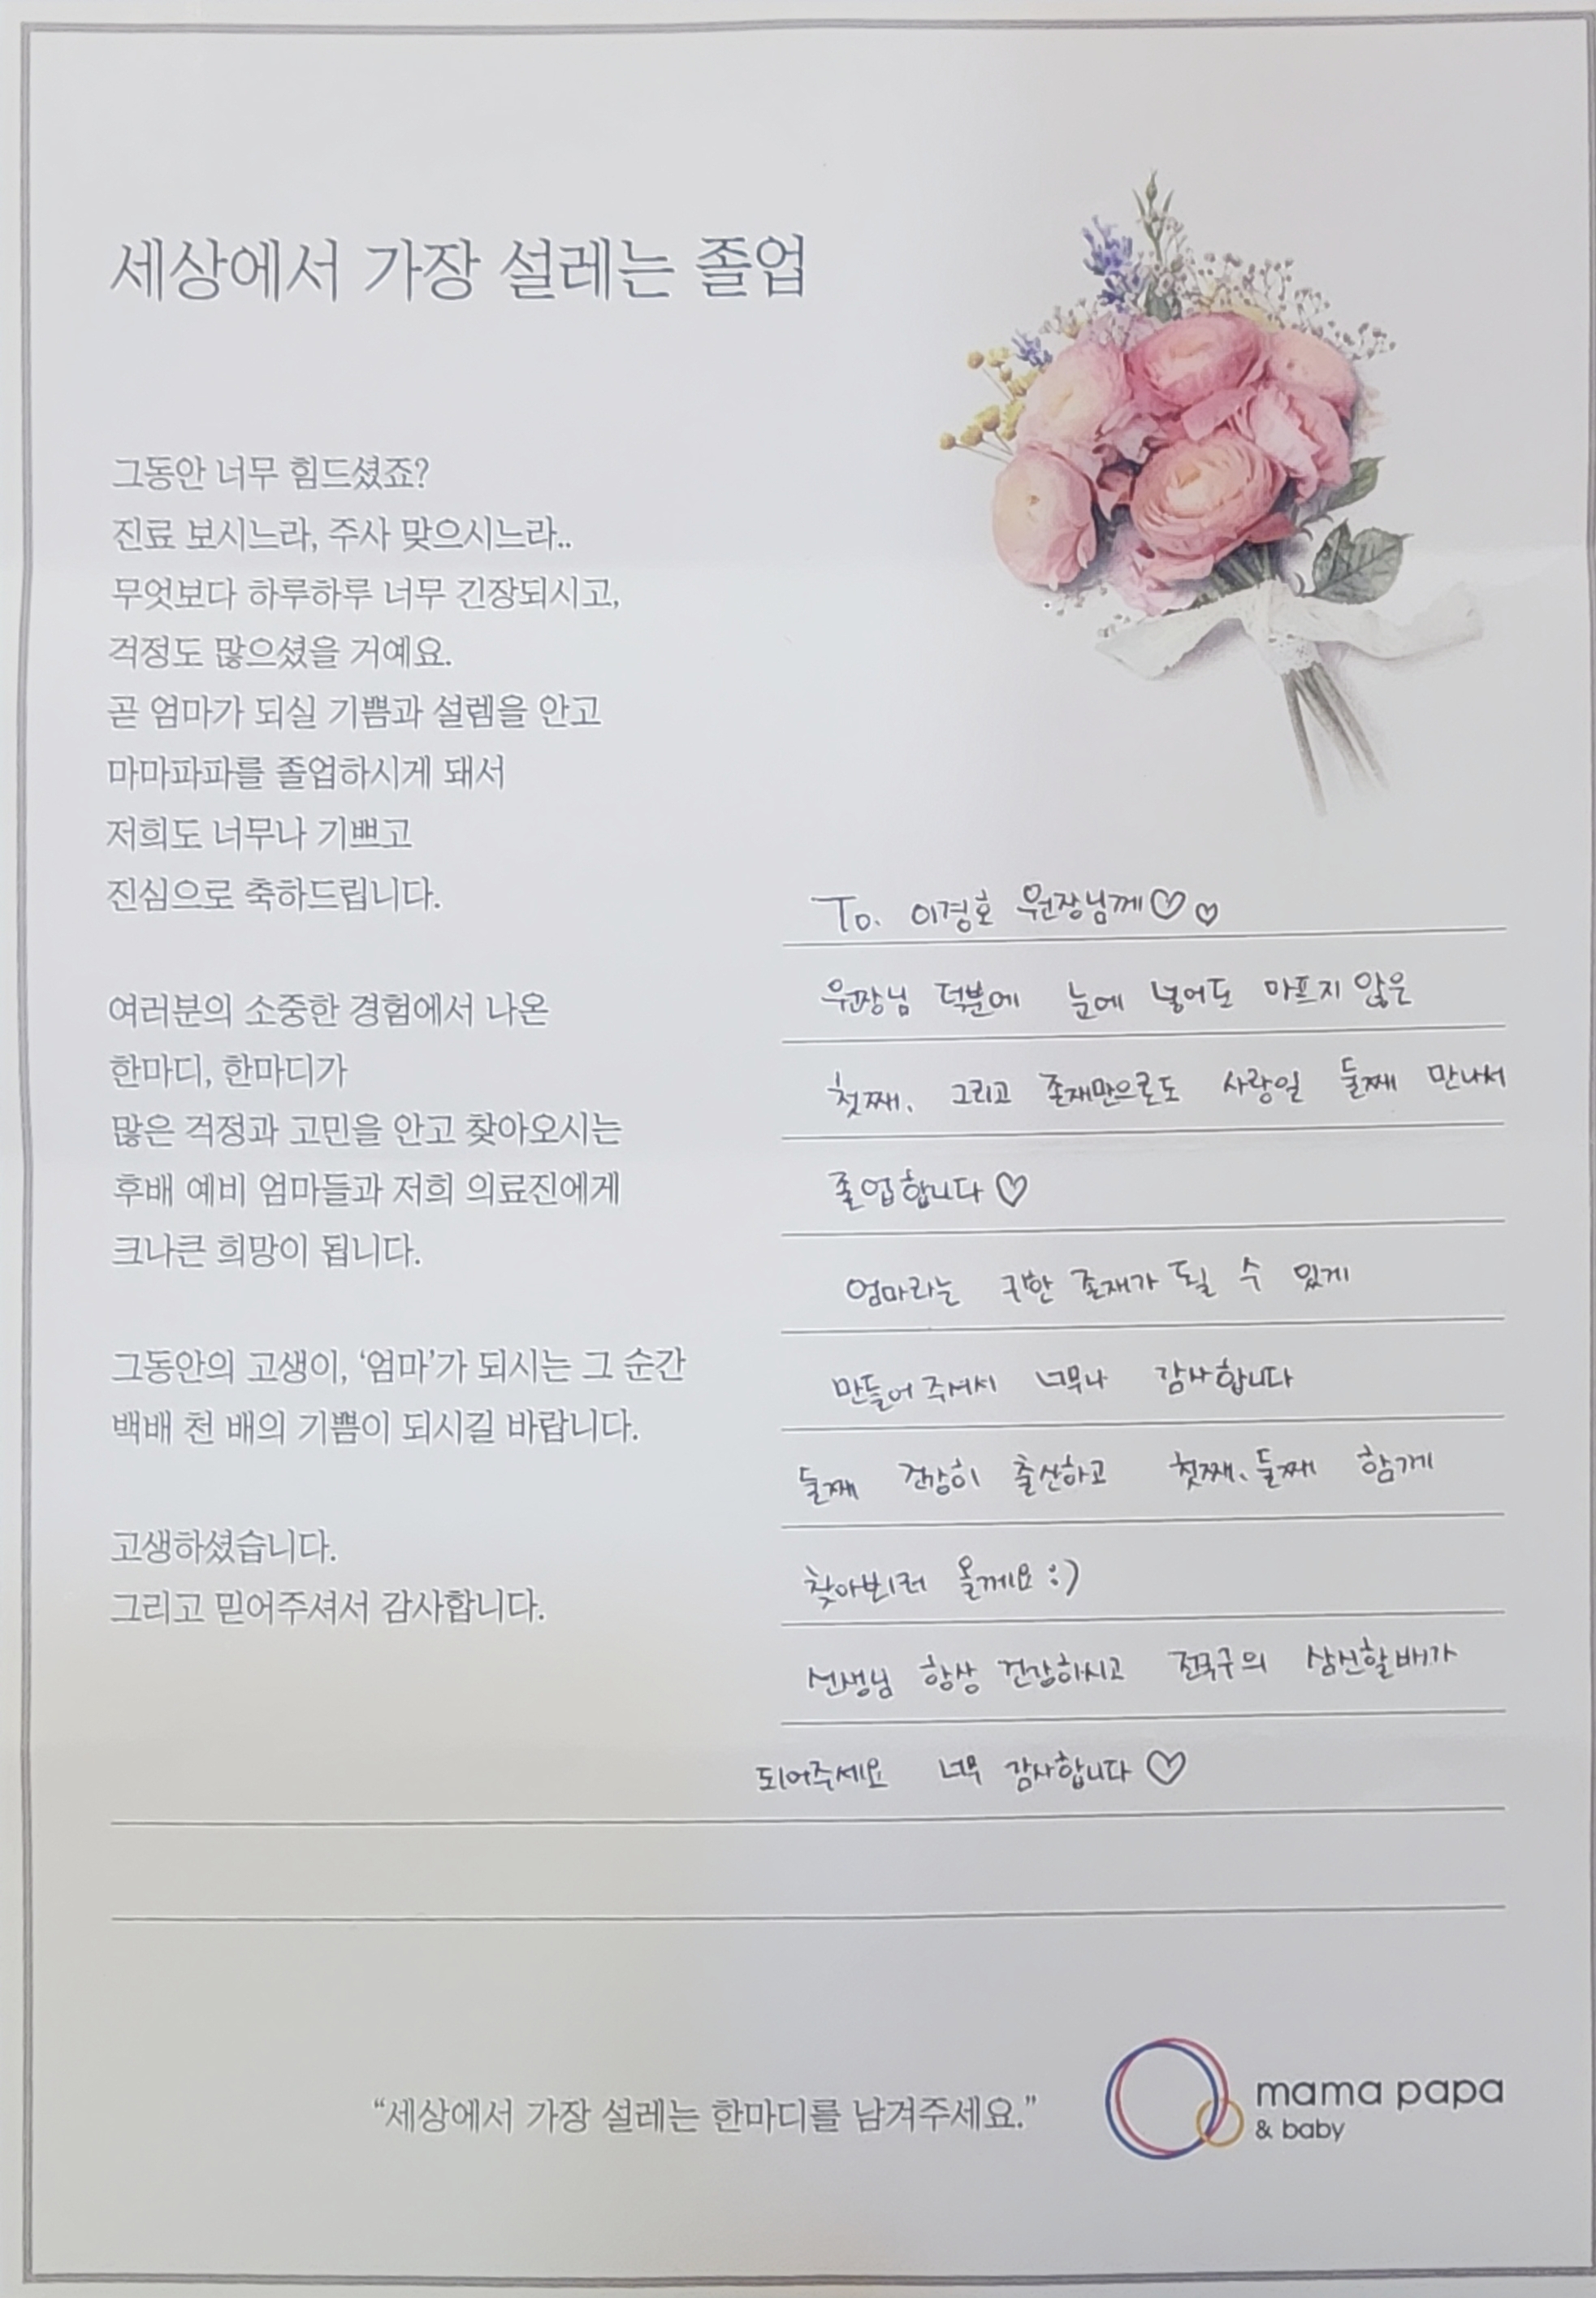 세상에서 가장 설레는 졸업
그동안 너무 힘드셨죠?
진료 보시느라, 주사 맞으시느라..
무엇보다 하루하루 너무 긴장되시고,
걱정도 많으셨을 거예요.
곧 엄마가 되실 기쁨과 설렘을 안고
마마파파를 졸업하시게 돼서
저희도 너무나 기쁘고
진심으로 축하드립니다.
여러분의 소중한 경험에서 나온
한마디, 한마디가
많은 걱정과 고민을 안고 찾아오시는
후배 예비 엄마들과 저희 의료진에게
크나큰 희망이 됩니다.
그동안의 고생이, ‘엄마’가 되시는 그 순간
백배 천 배의 기쁨이 되시길 바랍니다.
고생하셨습니다.
그리고 믿어주셔서 감사합니다.
To. 이경호 원장님께♡♡
원장님 덕분에 눈에 넣어도 아프지 않은
첫째, 그리고 존재만으로도 사랑일 둘째 만나서
졸업합니다♡
엄마라는 귀한 존재가 될 수 있게
만들어 주셔서 너무나 감사합니다
둘째 건강히 출산하고 첫째, 둘째 함께
찾아뵈러 올게요 :)
선생님 항상 건강하시고 전국구의 삼신할배가
되어주세요 너무 감사합니다♡
“세상에서 가장 설레는 한마디를 남겨주세요.”
mama papa
& baby